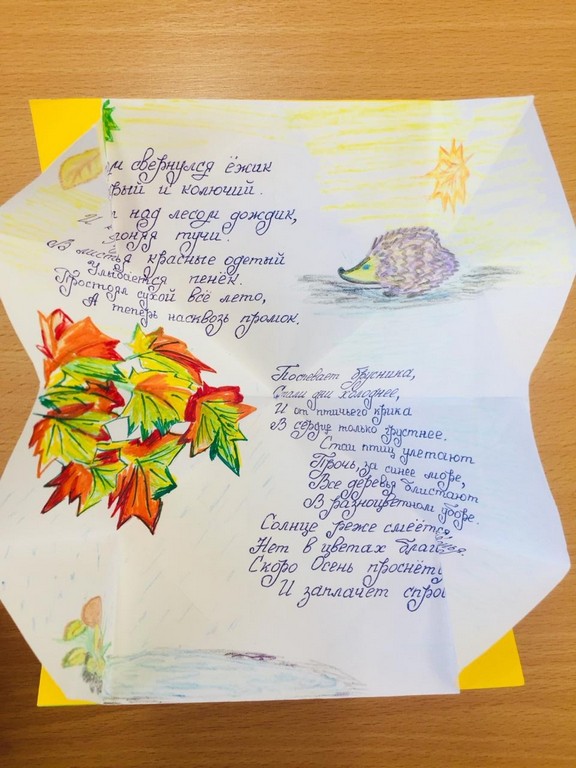 свернулся ёжик
и колючий.
И над лесом дождик,
тучи.
В листья красные одетый
Улыбается пенёк.
Простоял сухой всё лето,
А теперь насквозь промок.
Поспевает брусника,
Стали дни холоднее,
И от птичьего крика
В сердце только грустнее.
Стаи птиц улетают
Прочь, за синее море,
Все деревья блистают
В разноцветном уборе.
Солнце реже смеётся,
Нет в цветах
Скоро Осень проснёт
И заплачет спро